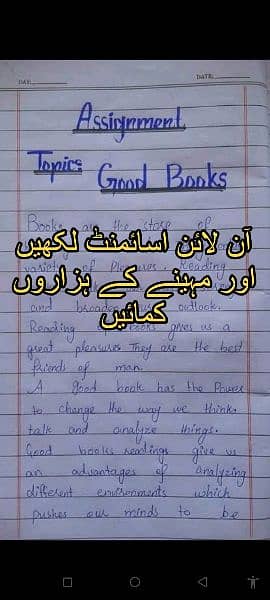 DATE:
DATE:
Assignment
Topic: Good Books
Books are the store of
آن لائن اسائمنٹ لکھیں
variety of Pleasures. Reading
اور مہینے کے ہزاروں
and broadens outlook.
کمائیں
Reading books gives us a
great pleasures They are the best
friends of man.
A good book has the Power
to change the way we think,
talk and analyze things.
Good books readings give us
an advantages of analyzing
different environments which
pushes our minds to be